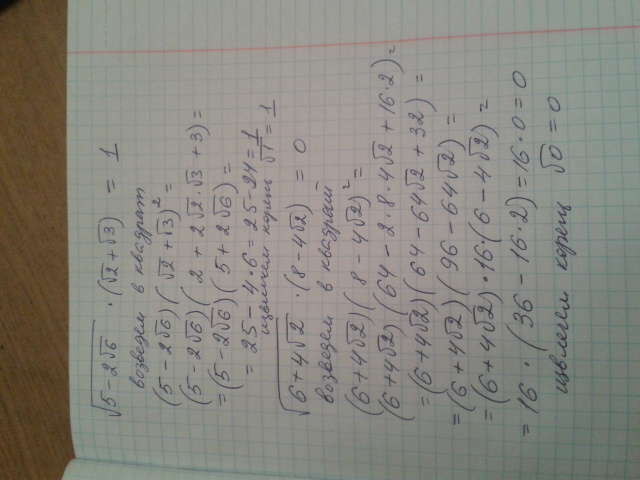 √5-2√6 · (√2+√3) = 1
возведем в квадрат
(5-2√6)(√2+√3)² =
(5-2√6)(2+2√2·√3+3) =
=(5-2√6)(5+2√6) =
= 25-4·6=25-24=1
извлечем корень √1 = 1
√6+4√2 · (8-4√2) = 0
возведем в квадрат
(6+4√2)(8-4√2)² =
(6+4√2)(64-2·8·4√2+16·2) =
=(6+4√2)(64-64√2+32) =
=(6+4√2)(96-64√2) =
=(6+4√2)·16·(6-4√2) =
=16·(36-16·2)=16·0=0
извлечем корень √0=0